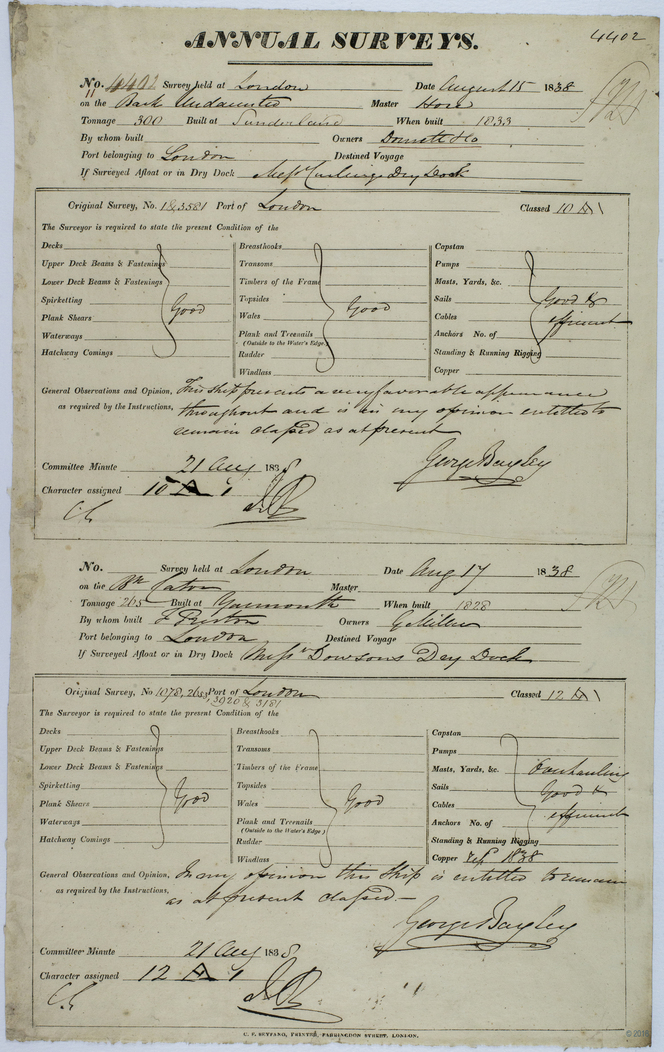 4402
ANNUAL SURVEYS.
No. 4402 Survey held at London Date August 15 1838
on the Bark Undaunted Master
Tonnage 300 Built at Sunderland When built 1833
By whom built Owners
Port belonging to London Destined Voyage
If Surveyed Afloat or in Dry Dock Messrs Curlings Dry Dock
Original Survey, No. 1&3581 Port of London Classed 10 A 1
The Surveyor is required to state the present Condition of the
Decks Breasthooks Capstan
Upper Deck Beams & Fastenings Transoms Pumps
Lower Deck Beams & Fastenings Timbers of the Frame Masts, Yards, &c.
Spirketting Topsides Sails Good &
Plank Shears Good Wales Good Cables efficient
Waterways Plank and Treenails Anchors No. of
(Outside to the Water's Edge)
Hatchway Comings Rudder Standing & Running Rigging
Windlass Copper
General Observations and Opinion, This ship presents a very favorable appearance
as required by the Instructions, throughout and is in my opinion entitled to
remain classed as at present
George Bayley
Committee Minute 21 Aug 1838
Character assigned 10 A 1
No. Survey held at London Date Aug 17 1838
on the Bk Caton Master
Tonnage 265 Built at Yarmouth When built 1828
By whom built F Preston Owners
Port belonging to London Destined Voyage
If Surveyed Afloat or in Dry Dock Messrs Dowsons Dry Dock
Original Survey, No. 1078, 2653, Port of London Classed 12 A 1
3920 & 3181
The Surveyor is required to state the present Condition of the
Decks Breasthooks Capstan
Upper Deck Beams & Fastenings Transoms Pumps
Lower Deck Beams & Fastenings Timbers of the Frame Masts, Yards, &c. Overhauling
Spirketting Topsides Sails Good &
Plank Shears Good Wales Good Cables efficient
Waterways Plank and Treenails Anchors No. of
(Outside to the Water's Edge)
Hatchway Comings Rudder Standing & Running Rigging
Windlass Copper 1838
General Observations and Opinion, In my opinion this ship is entitled to remain
as required by the Instructions, as at present classed.—
George Bayley
Committee Minute 21 Aug 1838
Character assigned 12 A 1
C. F. SEYFANG, PRINTER, FARRINGDON STREET, LONDON.